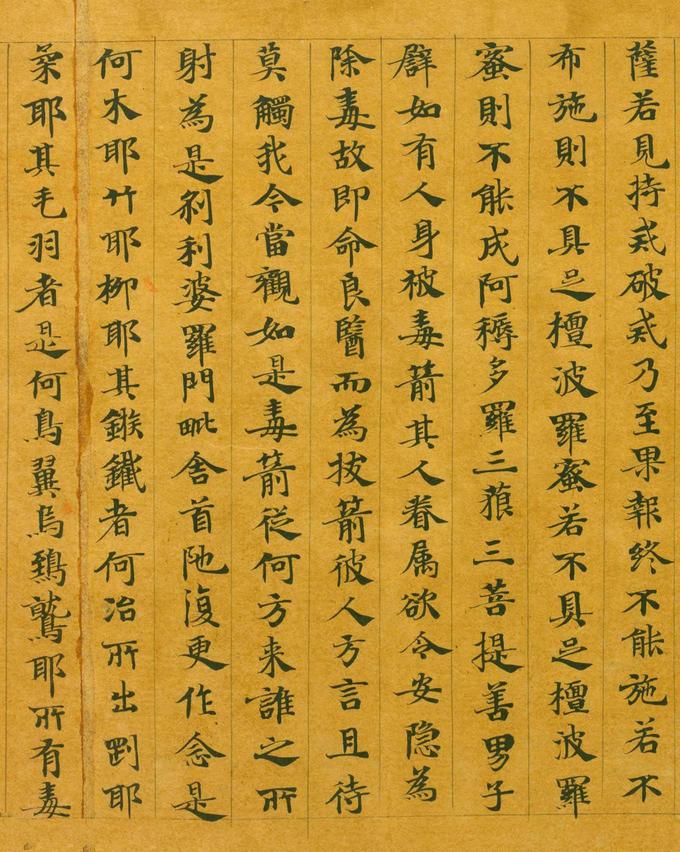 薩若見持戒破戒乃至果報終不能施若不
布施則不具足檀波羅蜜若不具足檀波羅
蜜則不能成阿耨多羅三藐三菩提善男子
譬如有人身被毒箭其人眷属欲令安隐為
除毒故即命良醫而為拔箭彼人方言且待
莫觸我今當觀如是毒箭従何方来誰之所
射為是刹利婆羅門毗舍首陁復更作念是
何木耶竹耶柳耶其鏃鐵者何冶所出剛耶
柔耶其毛羽者是何鳥翼烏鵄鷲耶所有毒